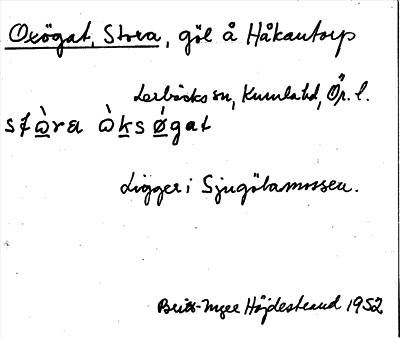 Oxögat, Stora, göl å Håkantorp
Lerbäcks sn, Kumla hd, Ör. l.
stὼra ὼks ǿgat
Ligger i Sjugölamossen.
Britt-Inger Höjdestrand 1952